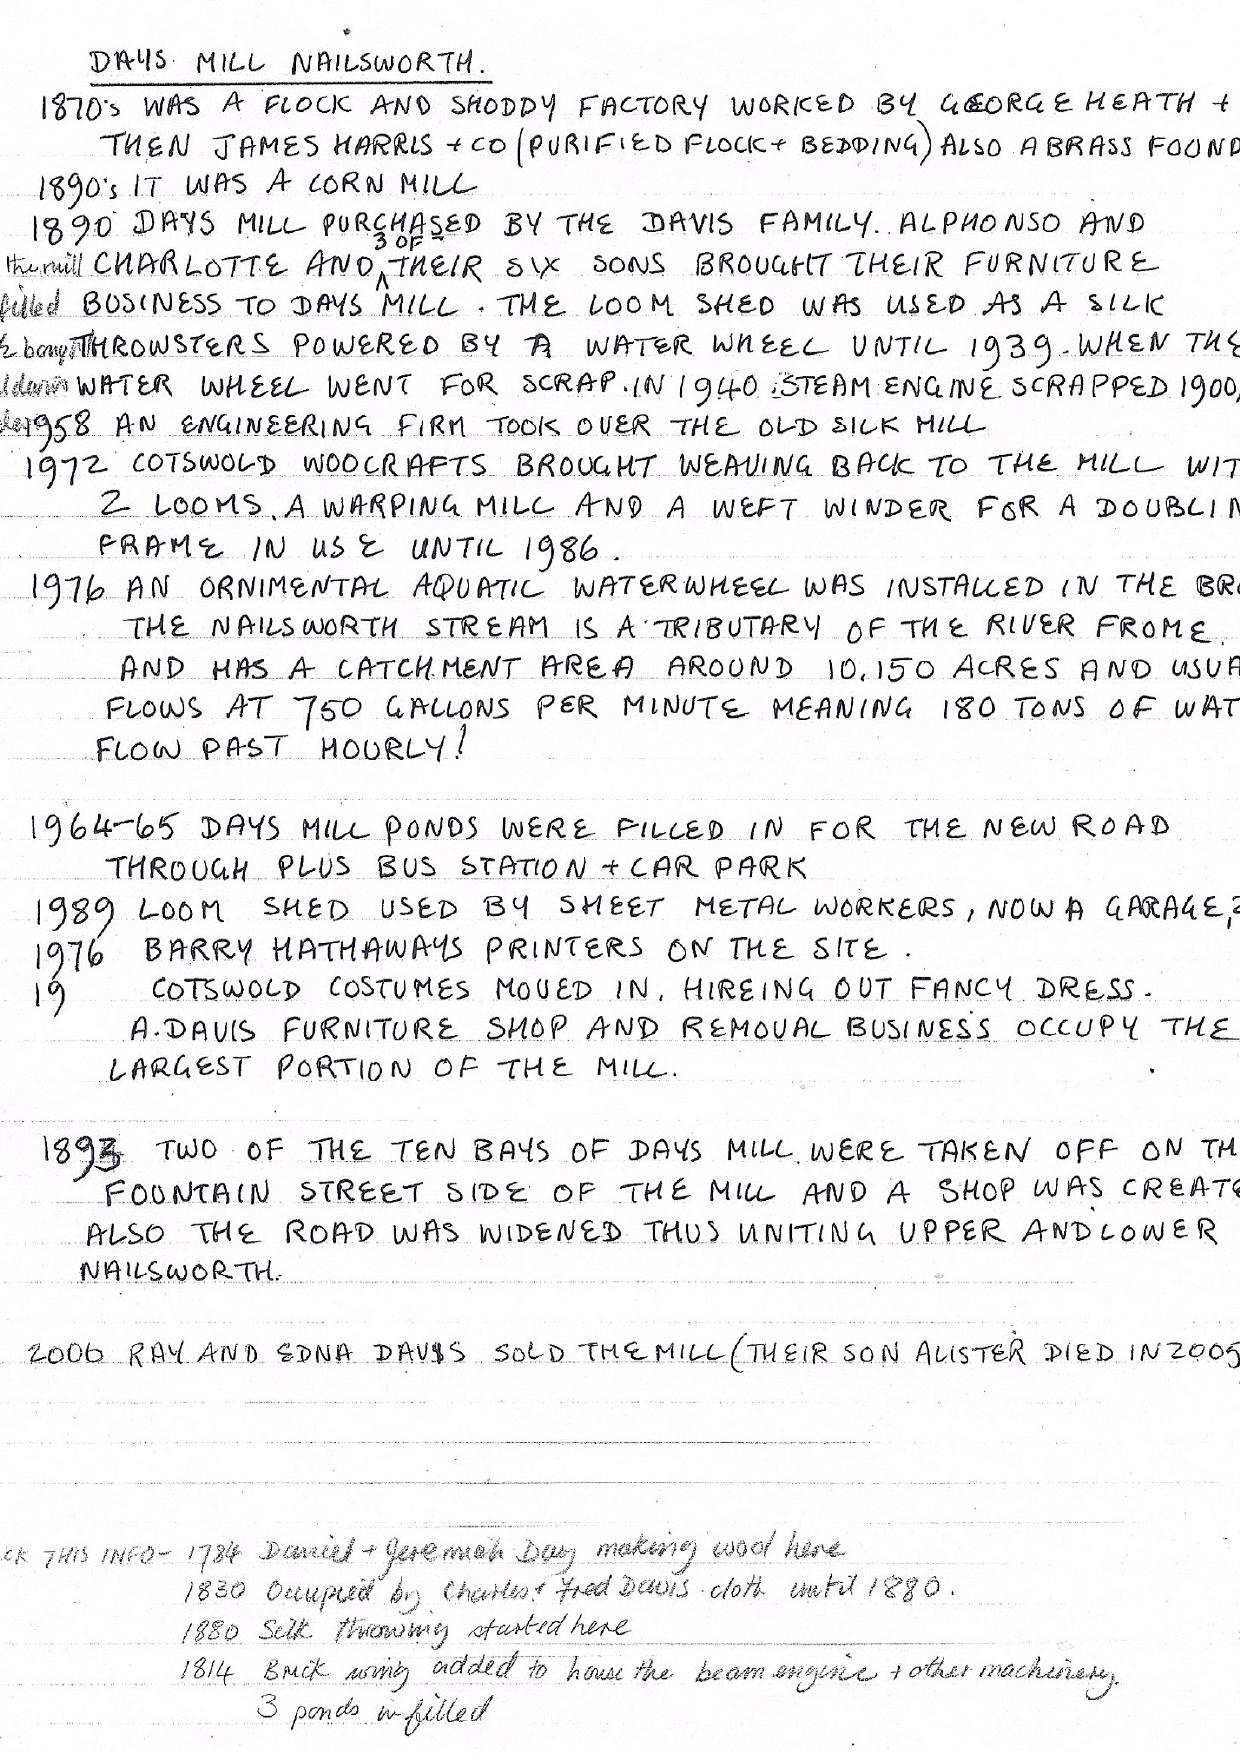 DAYS MILL NAILSWORTH.
1870's WAS A FLOCK AND SHODDY FACTORY WORKED BY GEORGE HEATH +
THEN JAMES HARRIS + CO (PURIFIED FLOCK + BEDDING) ALSO A BRASS FOUND
1890's IT WAS A CORN MILL
1890 DAYS MILL PURCHASED BY THE DAVIS FAMILY. ALPHONSO AND
3 OF
the mill CHARLOTTE AND THEIR SIX SONS BROUGHT THEIR FURNITURE
filled BUSINESS TO DAYS MILL. THE LOOM SHED WAS USED AS A SILK
THROWSTERS POWERED BY A WATER WHEEL UNTIL 1939. WHEN THE
WATER WHEEL WENT FOR SCRAP. IN 1940 STEAM ENGINE SCRAPPED 1900,
1958 AN ENGINEERING FIRM TOOK OVER THE OLD SILK MILL
1972 COTSWOLD WOOCRAFTS BROUGHT WEAVING BACK TO THE MILL WIT
2 LOOMS, A WARPING MILL AND A WEFT WINDER FOR A DOUBLIN
FRAME IN USE UNTIL 1986.
1976 AN ORNIMENTAL AQUATIC WATERWHEEL WAS INSTALLED IN THE BRO
THE NAILSWORTH STREAM IS A TRIBUTARY OF THE RIVER FROME
AND HAS A CATCHMENT AREA AROUND 10,150 ACRES AND USUA
FLOWS AT 750 GALLONS PER MINUTE MEANING 180 TONS OF WAT
FLOW PAST HOURLY!
1964-65 DAYS MILL PONDS WERE FILLED IN FOR THE NEW ROAD
THROUGH PLUS BUS STATION + CAR PARK
1989 LOOM SHED USED BY SHEET METAL WORKERS, NOW A GARAGE,
1976 BARRY HATHAWAYS PRINTERS ON THE SITE.
19 COTSWOLD COSTUMES MOVED IN. HIREING OUT FANCY DRESS.
A. DAVIS FURNITURE SHOP AND REMOVAL BUSINESS OCCUPY THE
LARGEST PORTION OF THE MILL.
1893 TWO OF THE TEN BAYS OF DAYS MILL WERE TAKEN OFF ON TH
FOUNTAIN STREET SIDE OF THE MILL AND A SHOP WAS CREATE
ALSO THE ROAD WAS WIDENED THUS UNITING UPPER AND LOWER
NAILSWORTH.
2006 RAY AND EDNA DAVIS SOLD THE MILL (THEIR SON ALISTER DIED IN 2005
CK THIS INFO- 1784 Daniel + Jeremiah Day making wool here
1830 Occupied by Charles + Fred Davis cloth until 1880.
1880 Silk throwing started here
1814 Brick wing added to house the beam engine + other machinery.
3 ponds in filled